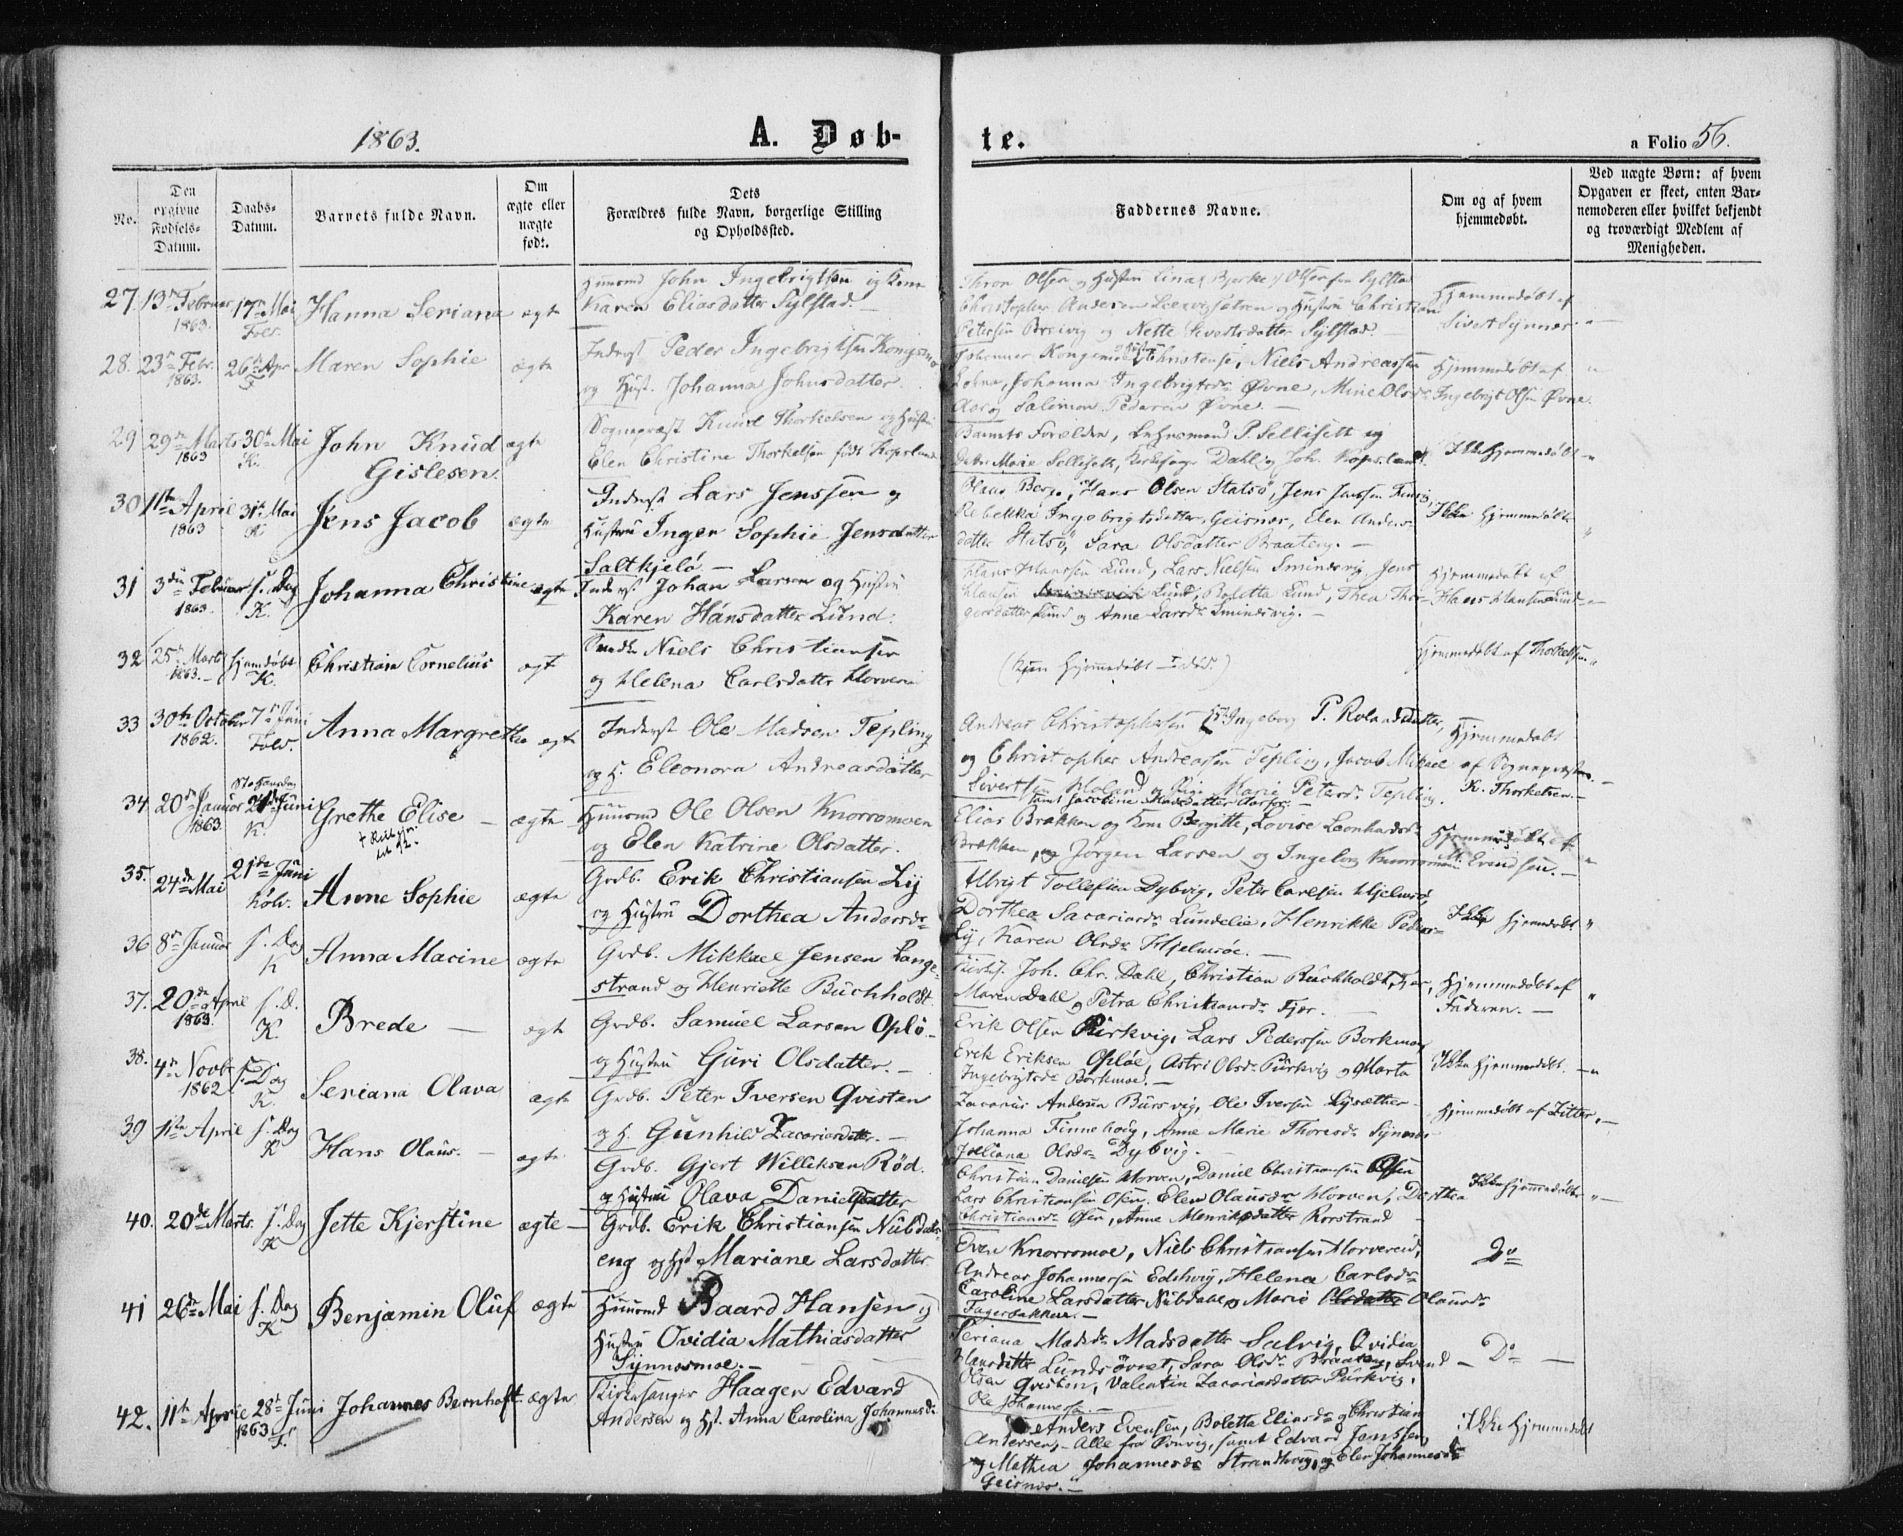 1863.
A. Døb-
te.
a Folio 56.
No.
Den
opgivne
Fødsels-
Datum.
Daabs-
Datum.
Barnets fulde Navn.
Om
ægte eller
uægte
født.
Dets
Forældres fulde Navn, borgerlige Stilling
og Opholdssted.
Faddernes Navne.
Om og af hvem
hjemmedøbt.
Ved uægte Børn: af hvem
Opgaven er skeet, enten Bar-
nemoderen eller hvilket bekjendt
og troværdigt Medlem af
Menigheden.
27. 13de Februar 1863. 17de Mai Folv. Hanna Seriana ægte
Huusmd John Ingebrigtsen og Kone
Karen Eliasdatter Sylstad. —
Thron Olsen og Hustru Lina
Christopher Andersen og Hustru Christiane
Petersen Breivig og Nette Sivertsdatter Sylstad. —
Hjemmedøbt af
Sivert Synnes.
28. 23de Febr. 1863. 26de Apr F. Maren Sophie ægte
Inderst Peder Ingebrigtsen Kongsmo
og Hust. Johanna Johnsdatter.
Johannes Kongsmo og Hustru Christense, Niels Andreassen
Johanna Ingebrigtsdr Øvne, Mine Olsdr
og Salimon Pedersen Øvne. —
Hjemmedøbt af
Ingebrigt Olsen Øvne.
29 29de Marts 1863 30te Mai K. John Knud
Gislesen. ægte
Sognepræst Knud Thorkelsen og Hustru
Elen Christine Thorkelsen født Kopsland
Barnets Forældre, Lehnsmand P. Sellisett og
Petra Marie Sellisett, Kirkesanger Dahl og Joh. Kopsland.
Ikke hjemmedøbt
30 11te April 1863 31te Mai K Jens Jacob ægte
Inderst Lars Jenssen og
Hustru Inger Sophie Jensdatter
Saltkjelø —
Klaus Berg, Hans Olsen Statsø, Jens Janssen
Rebekka Ingebrigtsdatter Geisnes, Elen Anders-
datter Statsø, Sara Olsdatter Braaten. —
Ikke hjemmedøbt
31 3die Februar 1863. s. Dag K. Johanna Christine ægte
Inderst Johan Larsen og Hustru
Karen Hansdatter Lund.
Hans Hanssen Lund, Lars Nielsen Smindsvig, Jens
Lund, Boletta Lund, Thea Tho-
gersdatter Lund og Anne Larsdr Smindsvig. —
Hjemmedøbt af
Hans Hansen Lund
32 25de Marts 1863. — hjemdøbt K. Christian Cornelius ægt
Niels Christiansen
og Helena Carlsdatter Horven
(kun hjemmedøbt — død.)
Hjemmedøbt af Thorkelsen
33 30te October 1862. 7de Juni Folv. Anna Margrethe ægte
Inderst Ole Madsen Tepling
og H. Eleonora Andreasdatter
Andreas Christophersen Hst. Ingeborg P. Rolandsdatter,
og Christopher Andreassen Tepling, Jacob Mikael
Sivertsen Moland og Pige Marie Petersdr Tepling.
samt Jacobine Madsdatter
Hjemmedøbt
af Sognepræsten
K. Thorkelsen. —
34. 20de Januar 1863. Sta Hansdag 24de Juni K. Grethe Elise — ægte
Huusmd Ole Olsen Knorromoen
og Elen Katrine Olsdatter.
Elias Brækken og Kone Bergitte, Lovise Leonhardsdr
Brækken, og Jørgen Larsen og Ingeborg Knorromo
Hjemmedøbt af
M. Evendsen. —
35. 24de Mai 21de Juni Følv. Anne Sophie ægte
Grdb. Erik Christiansen Lij
og Hustru Dorthea Andersdr
Albrigt Tollefsen Dybvig, Peter Carlsen Hjelmsø,
Dorthea Sacariasdr Lundelie, Henrikke Peders-
Lij, Karen Olsdr Hjelmsøe. —
Ikke hjemmedøbt "
36 8de Januar s. Dag K Anna Marine ægte
Grdb. Mikkael Jensen Lange-
strand og Henriette Buchholdt.
Kirkes. Joh. Chr. Dahl, Christian Buchholdt, Fjær,
Maren Dahl og Petra Christiansdr Fjær. —
Hjemmedøbt af
Faderen. —
37. 20de April 1863. s. D. K. Brede — ægte
Grdb. Samuel Larsen Oplø-
og Hustru Guri Olsdatter. —
Erik Olsen Pürkvig, Lars Pederssen Borkmo,
Erik Eriksen Opløe, Astri Olsdr Pürkvig og Marta
Ingebrigtsdr Borkmoe. —
Ikke hjemmedøbt. —
38. 4de Novbr 1862. s. Dag K. Seriana Olava ægte
Grdb. Peter Iversen Qvisten
og H. Gunhild Zacariasdatter. —
Zacarias Andersen Bursvig, Ole Iversen Lysæther
Johanna Finnebody, Anne Marie Thoresdr Synnes-
Juliana Olsdr Dybvig.
Hjemmedøbt af Zitter, —
39 11te April s. Dag K Hans Olaus. — ægte
Grdb. Gjert Williksen Rød.
og Hustru Olava Danielsdatter
Christian Danielsen Horven, Daniel Christiansen Ofsen
Lars Christiansen Ofsen, Elen Olausdr Horven, Dorthea
Christiansdr Ofsen, Anne Henriksdatter Rorstrand
Ikke hjemmedøbt
40. 20de Marts. s. Dag K Jette Kjerstine ægte —
Grdb. Erik Christiansen Nübdal-
eng og Hst Mariane Larsdatter
Even Knorromoe, Niels Christiansen Horvereid,
Andreas Johannesen Edshvig, Helena Carlsdr
Caroline Larsdatter Nübdal og Marie Olsdatter Olausdr
Fagerbakken. —
Do
41 26de Mai s. Dag K Benjamin Oluf ægte
Huusmd Baard Hansen og
Hustru Ovidia Mathiasdatter
Synnesmoe. —
Seriana Madsdr Madsdatter Salvig, Ovidia
Hansdatter Lundsøvret, Sara Olsdr Braaten, Svend
Olsen Qvisten, Valentin Zacariasdatter Pürkvig,
Ole Johannesen. —
— Do —
42. 11te April 1863 28de Juni F. Johannes Bernhoft ægte
Kirkesanger Haagen Edvard
Andersen og Hst. Anna Carolina Johannesdr
Anders Evensen, Boletta Eliasdr og Christian
Andersen, — Alle fra Ønvig, samt Edvard Janssen
og Mathea Johannesdr Strandhvig, og Elen Johannesdr
Geisnes. —
Ikke hjemmedøbt